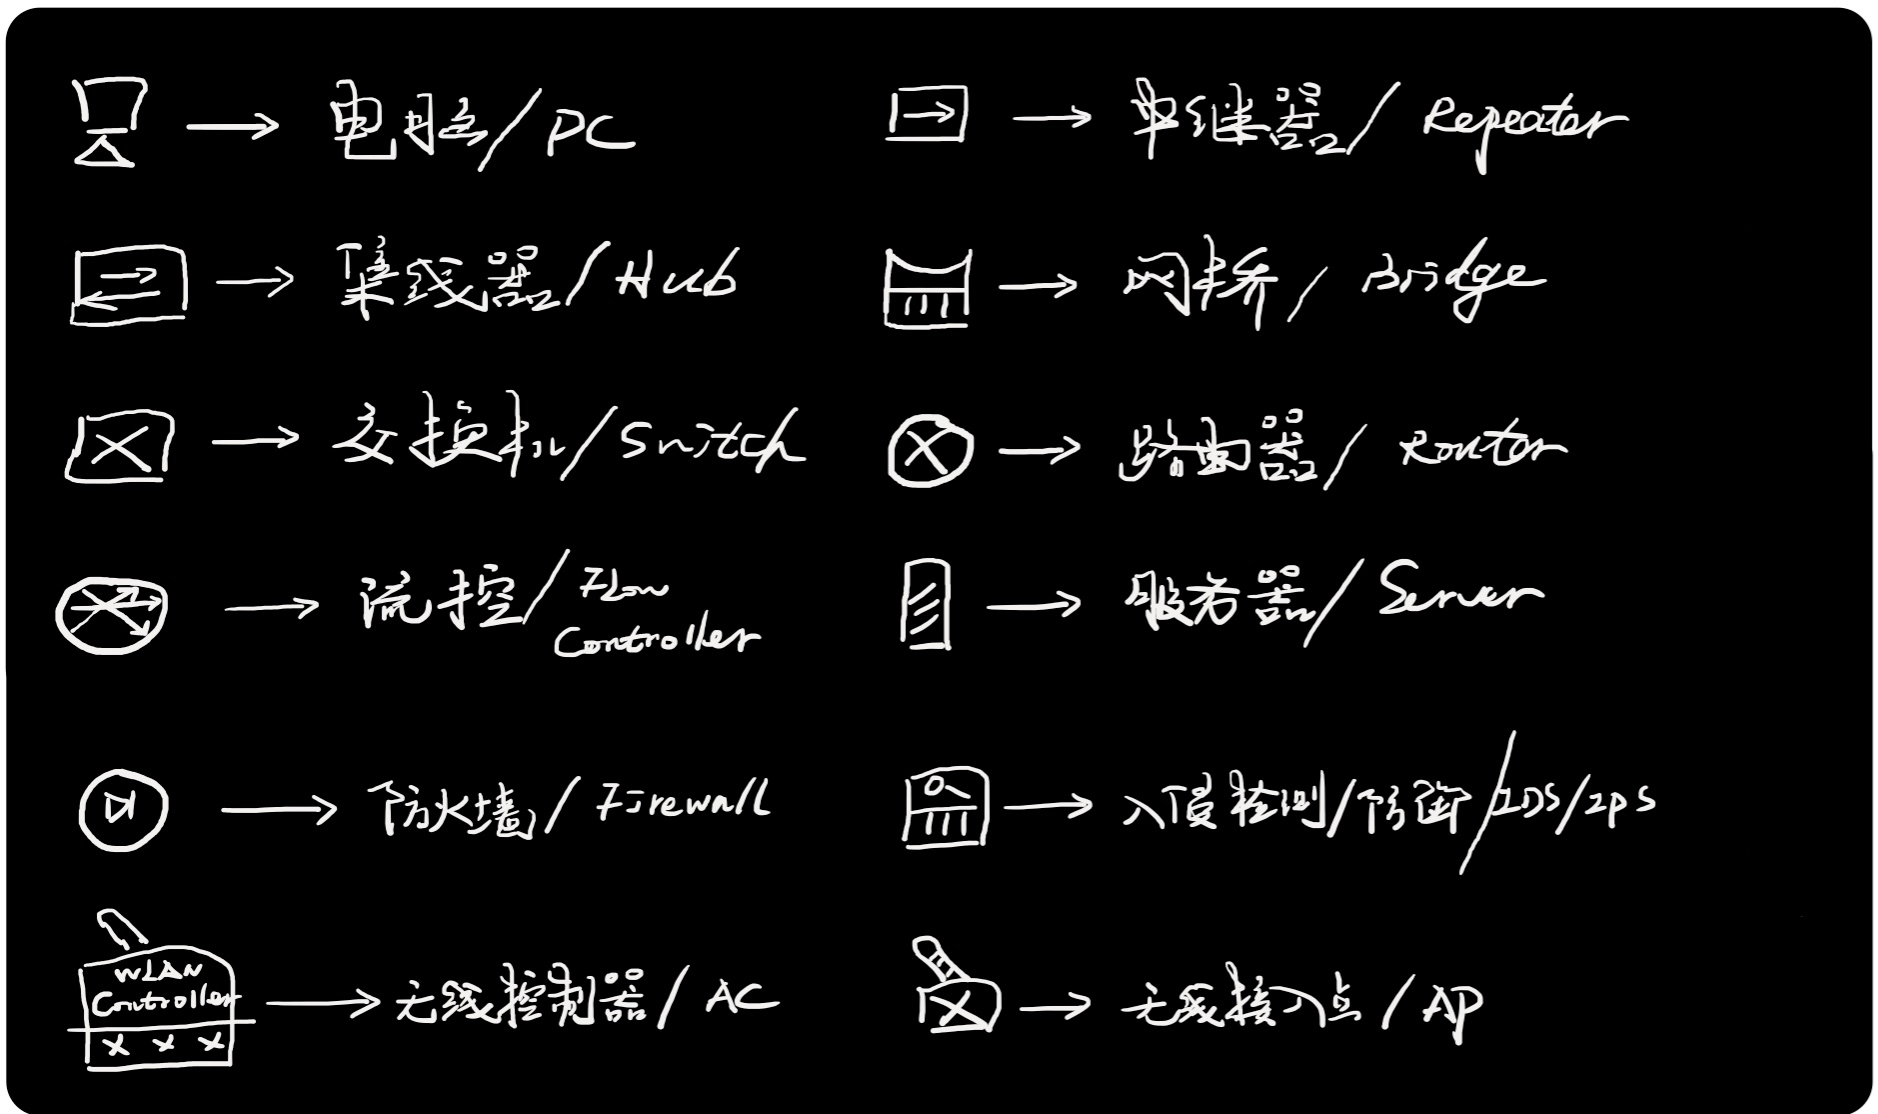 电脑/PC
单继器/Repeater
集线器/Hub
网桥/Bridge
交换机/Switch
路由器/Router
流控/Flow
Controller
服务器/Server
防火墙/Firewall
入侵检测/防御/IDS/IPS
WLAN
Controller
无线控制器/AC
无线接入点/AP